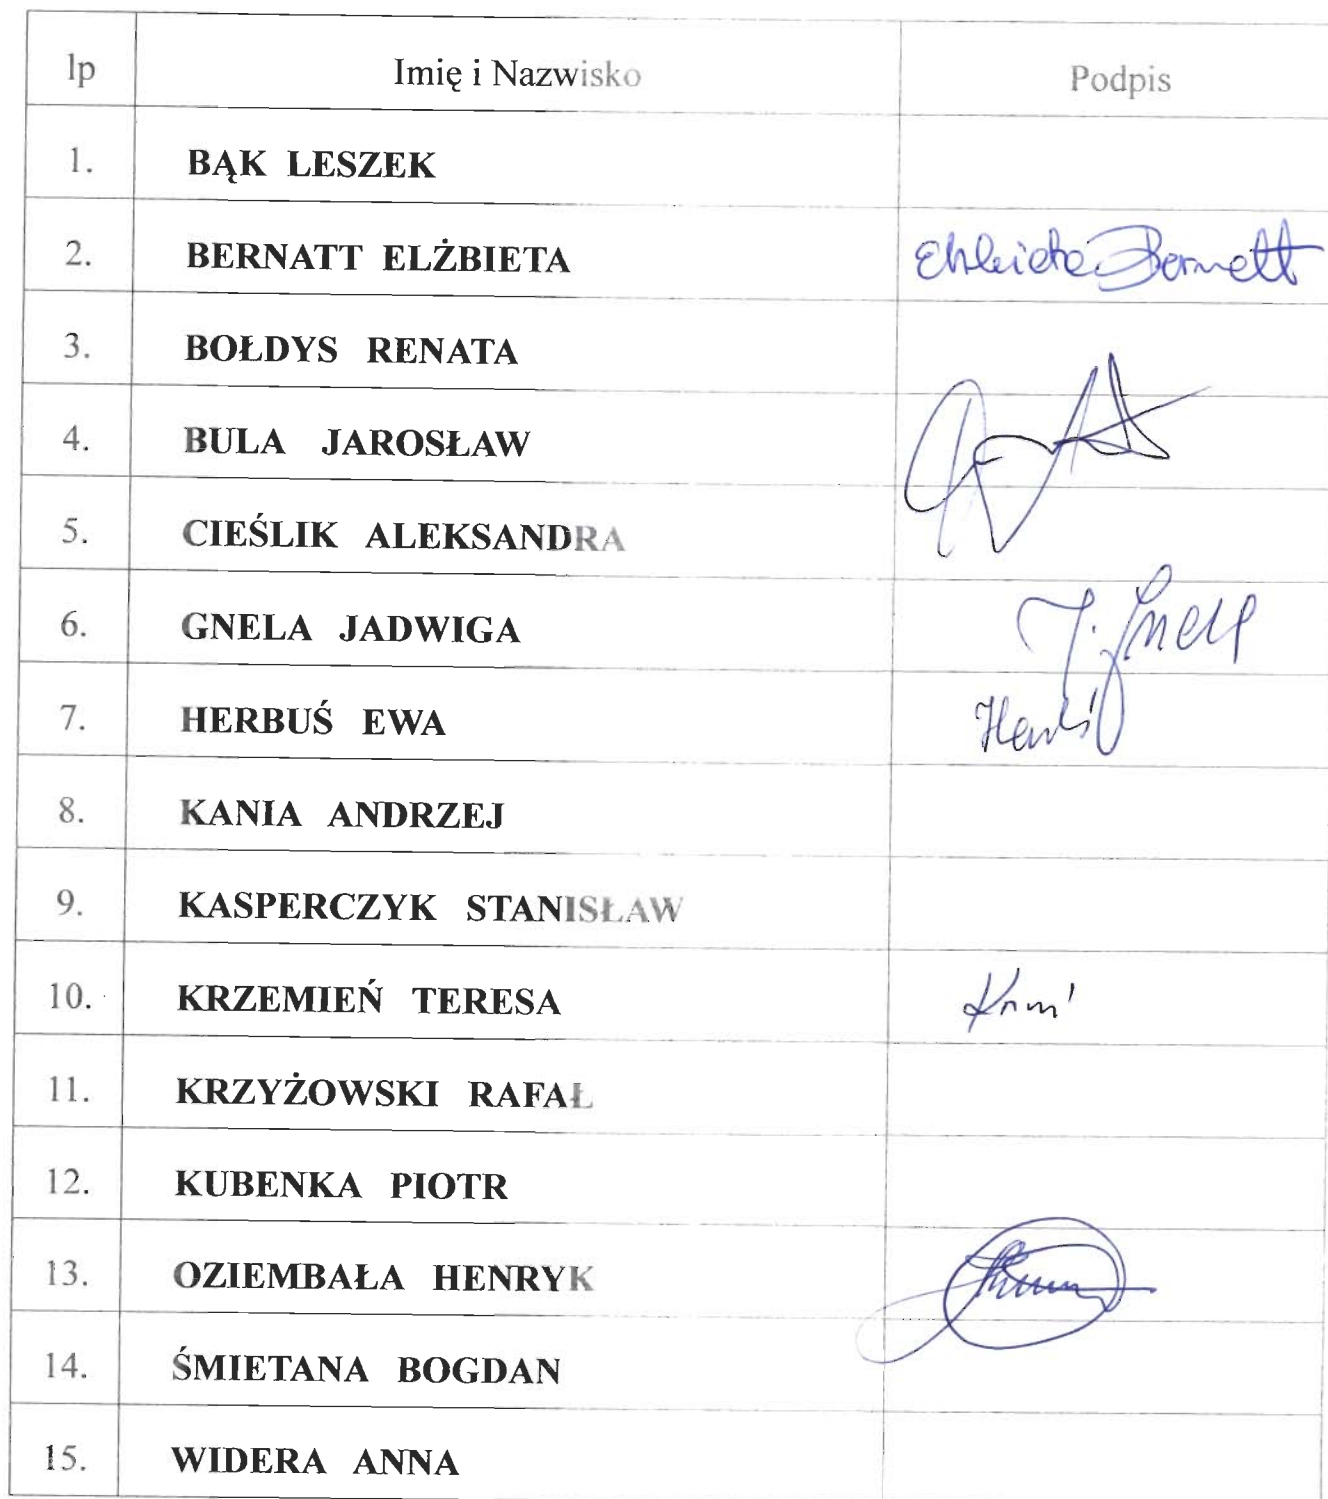 lp Imię i Nazwisko Podpis
1. BĄK LESZEK
2. BERNATT ELŻBIETA Elżbieta Bernatt
3. BOŁDYS RENATA
4. BULA JAROSŁAW
5. CIEŚLIK ALEKSANDRA
6. GNELA JADWIGA J. Gnela
7. HERBUŚ EWA Herbuś
8. KANIA ANDRZEJ
9. KASPERCZYK STANISŁAW
10. KRZEMIEŃ TERESA
11. KRZYŻOWSKI RAFAŁ
12. KUBENKA PIOTR
13. OZIEMBAŁA HENRYK
14. ŚMIETANA BOGDAN
15. WIDERA ANNA